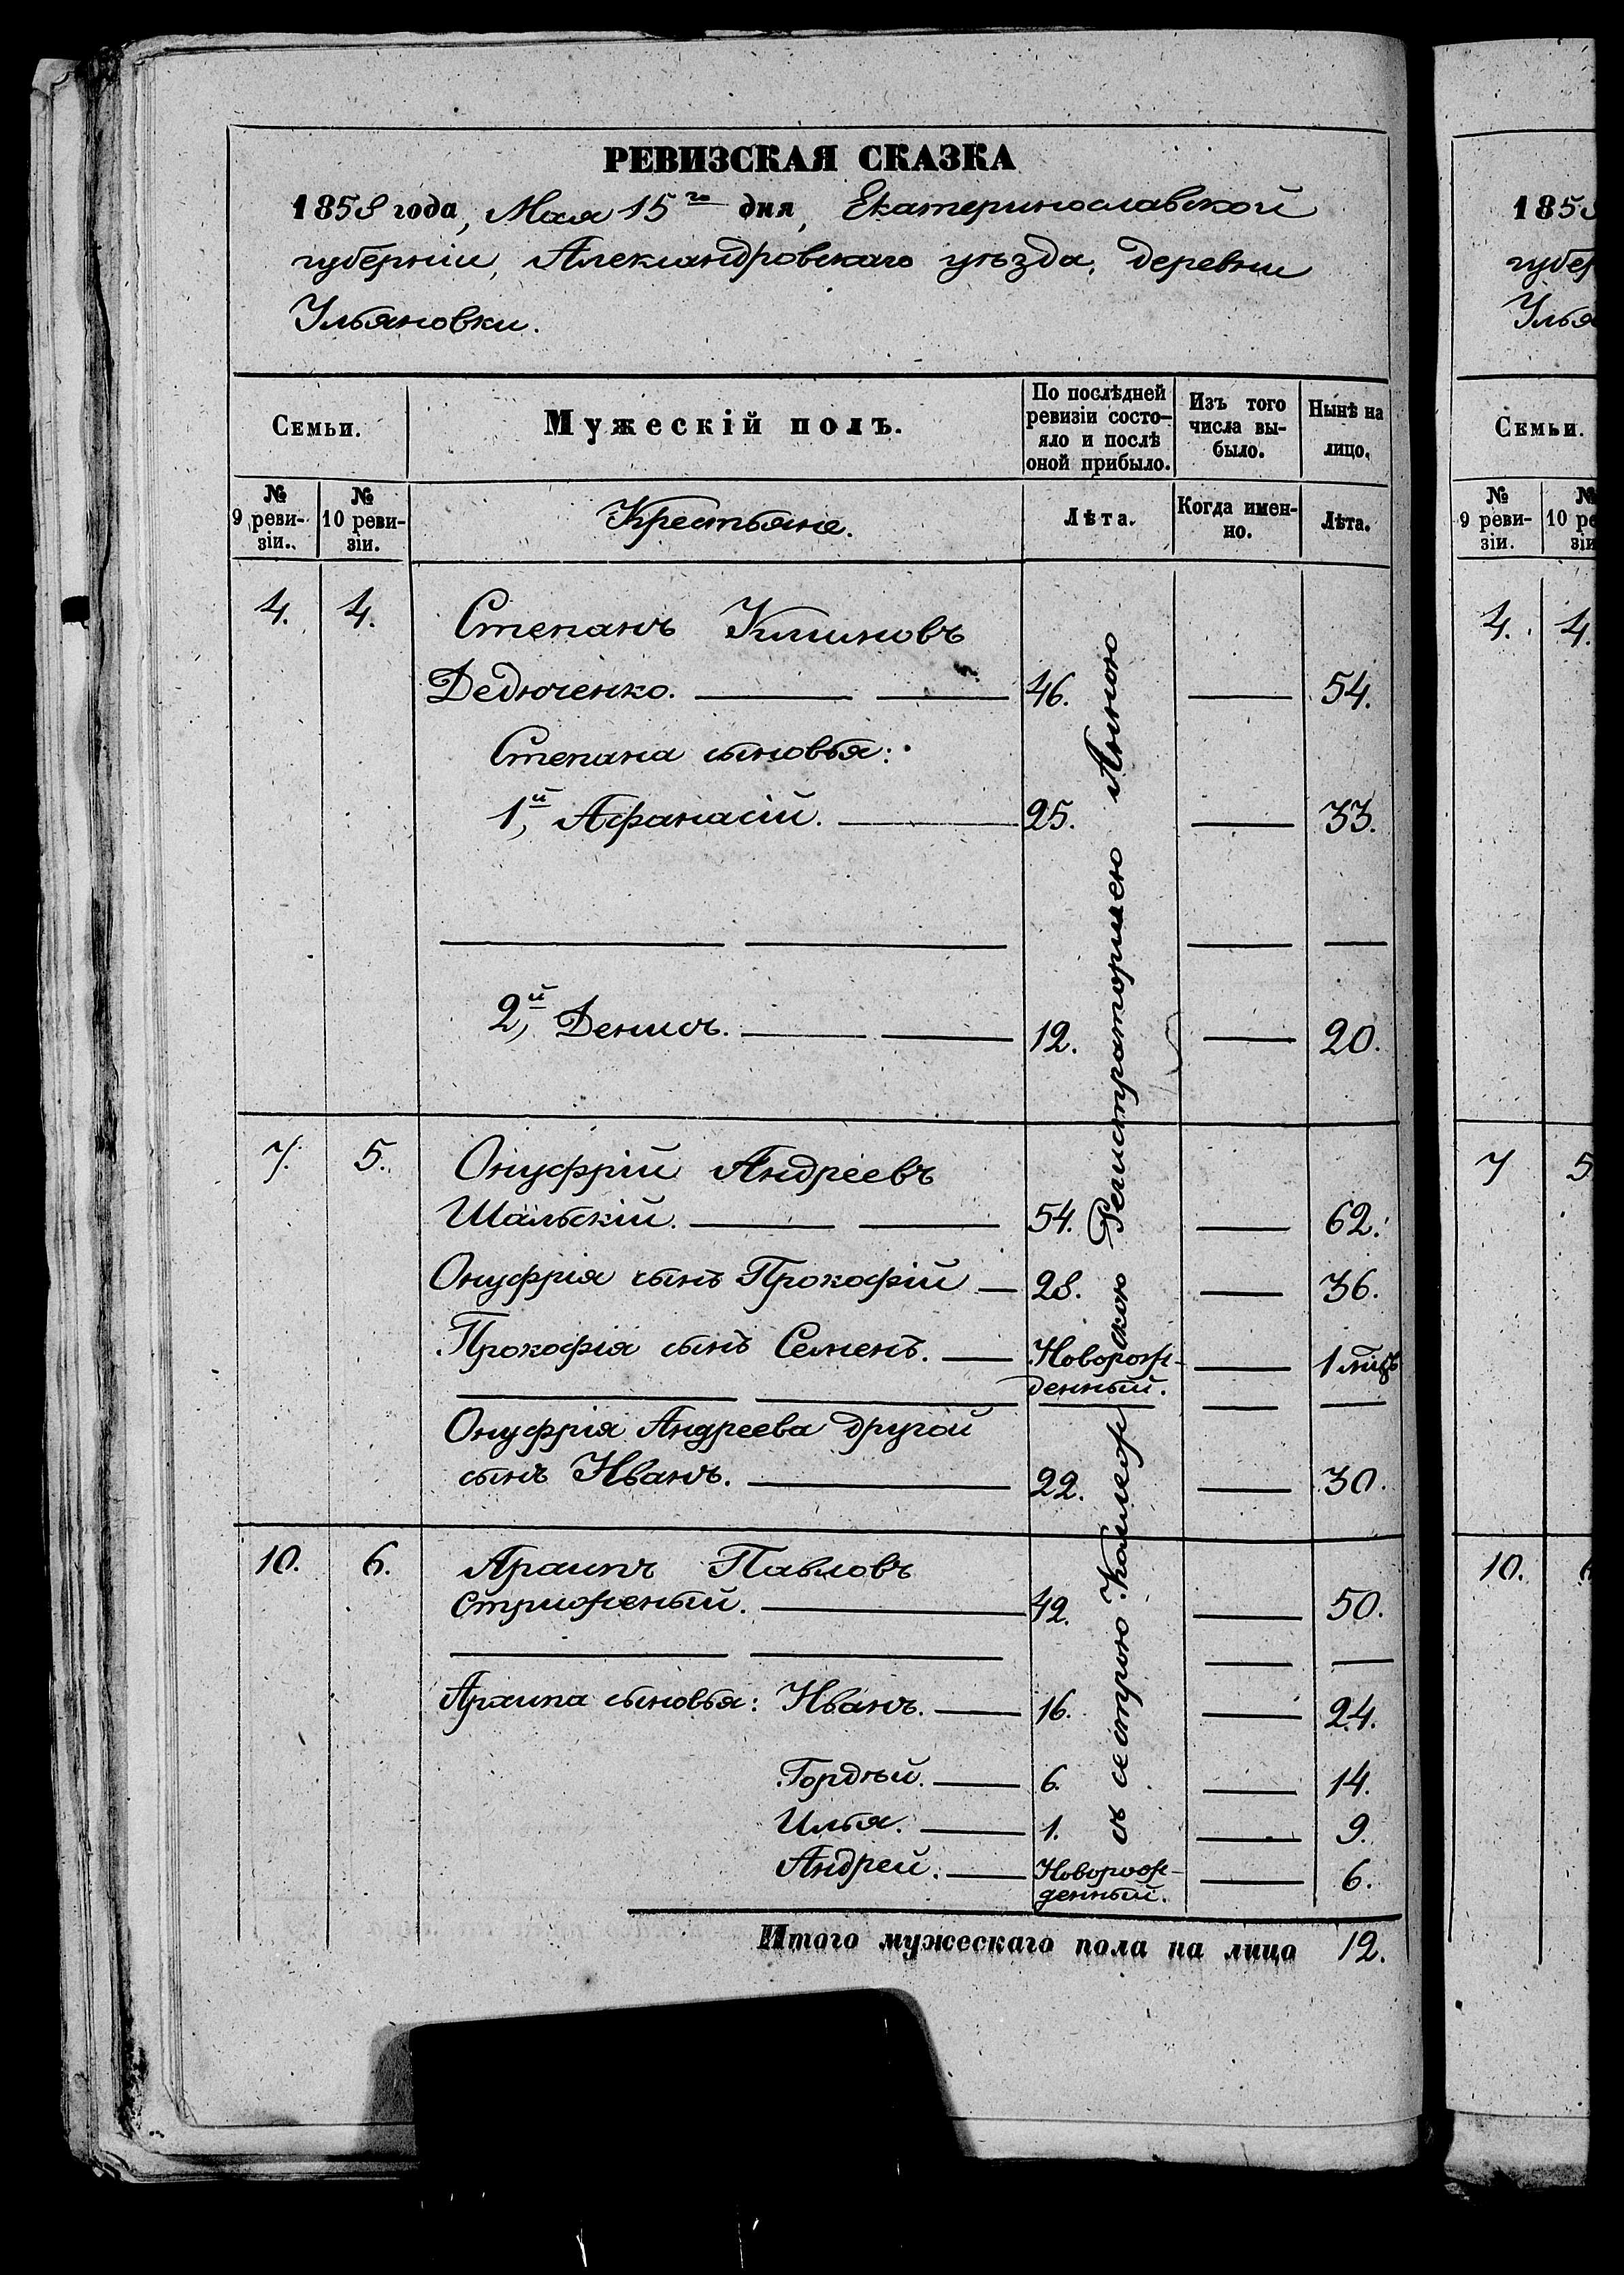 РЕВИЗСКАЯ СКАЗКА
1858 года, Мая 15го дня, Екатеринославской
губерніи, Александровскаго уѣзда, деревни
Ульяновки.
Семьи.
Мужескій полъ.
По послѣдней ревизіи состо-
яло и послѣ оной прибыло.
Изъ того числа вы-
было.
Нынѣ на лицо.
№ 9 реви-
зіи.
№ 10 реви-
зіи.
Крестьяне.
Лѣта.
Когда имен-
но.
Лѣта.
4. 4. Степанъ Климовъ
Дедюченко. 46. 54.
Степана сыновья:
1й, Афанасій. 25. 33.
2й, Денисъ. 12. 20.
7. 5. Онуфрій Андреевъ
Шальскій. 54. 62.
Онуфрія сынъ Прокофій 28. 36.
Прокофія сынъ Семенъ. Новорож-
денный. 1 мѣц
Онуфрія Андреева другой
сынъ Иванъ. 22. 30.
10. 6. Архипъ Павловъ
Стриженый. 42. 50.
Архипа сыновья: Иванъ. 16. 24.
Гордѣй. 6. 14.
Илья. 1. 9.
Андрей. Новорож-
денный. 6.
съ сестрою Коллежскою Регистраторшею Анною
Итого мужескаго пола на лицо 12.
185
губер
Улья
Семьи.
№ 9 реви-
зіи.
№ 10 ре
зіи
4. 4.
7 5
10.